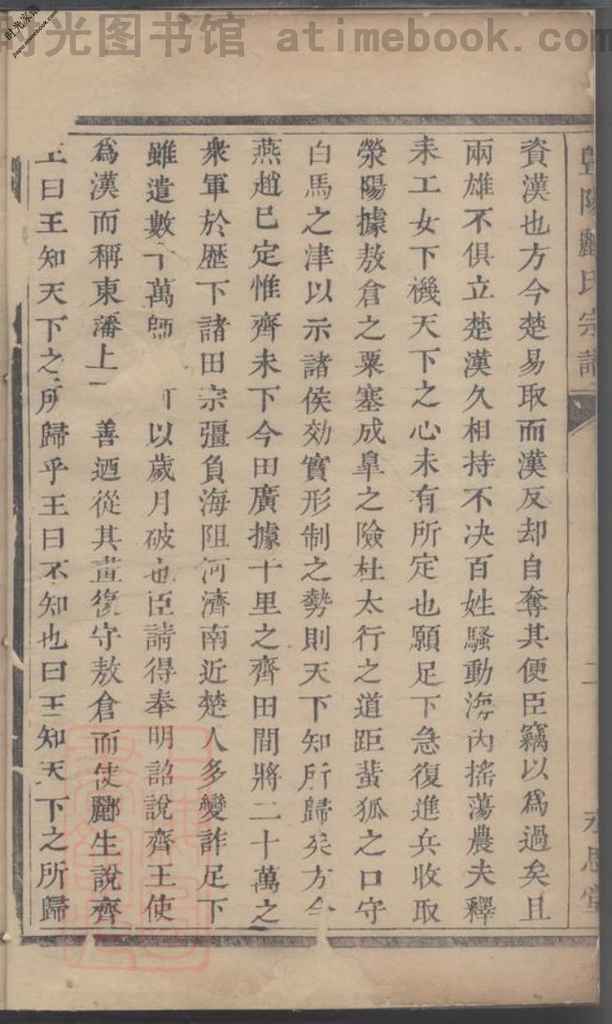 时光图书馆 atimebook.com
暨陽酈氏宗譜 二 永思堂
資漢也方今楚易取而漢反却自奪其便臣竊以爲過矣且
兩雄不俱立楚漢久相持不決百姓騷動海內搖蕩農夫釋
耒工女下機天下之心未有所定也願足下急復進兵收取
滎陽據敖倉之粟塞成臯之險杜太行之道距蜚狐之口守
白馬之津以示諸侯効實形制之勢則天下知所歸矣方今
燕趙已定惟齊未下今田廣據千里之齊田間將二十萬之
衆軍於歷下諸田宗彊負海阻河濟南近楚人多變詐足下
雖遣數十萬師 可以歲月破也臣請得奉明詔說齊王使
爲漢而稱東藩上 善迺從其畫復守敖倉而使酈生說齊
王曰王知天下之所歸乎王曰不知也曰王知天下之所歸